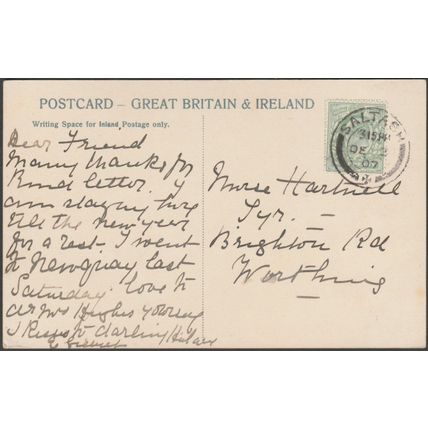 POSTCARD – GREAT BRITAIN & IRELAND
Writing Space for Inland Postage only.
Dear Friend
Many thanks for
kind letter. I
am staying here
till the new year
for a rest. I went
to Newquay last
Saturday. love to
dr Mrs Hughes yourself
& Kisses to darling
Nurse Hartnell
Tyr. –
Brighton Rd
Worthing
SALTASH
3 15 PM
DE
07